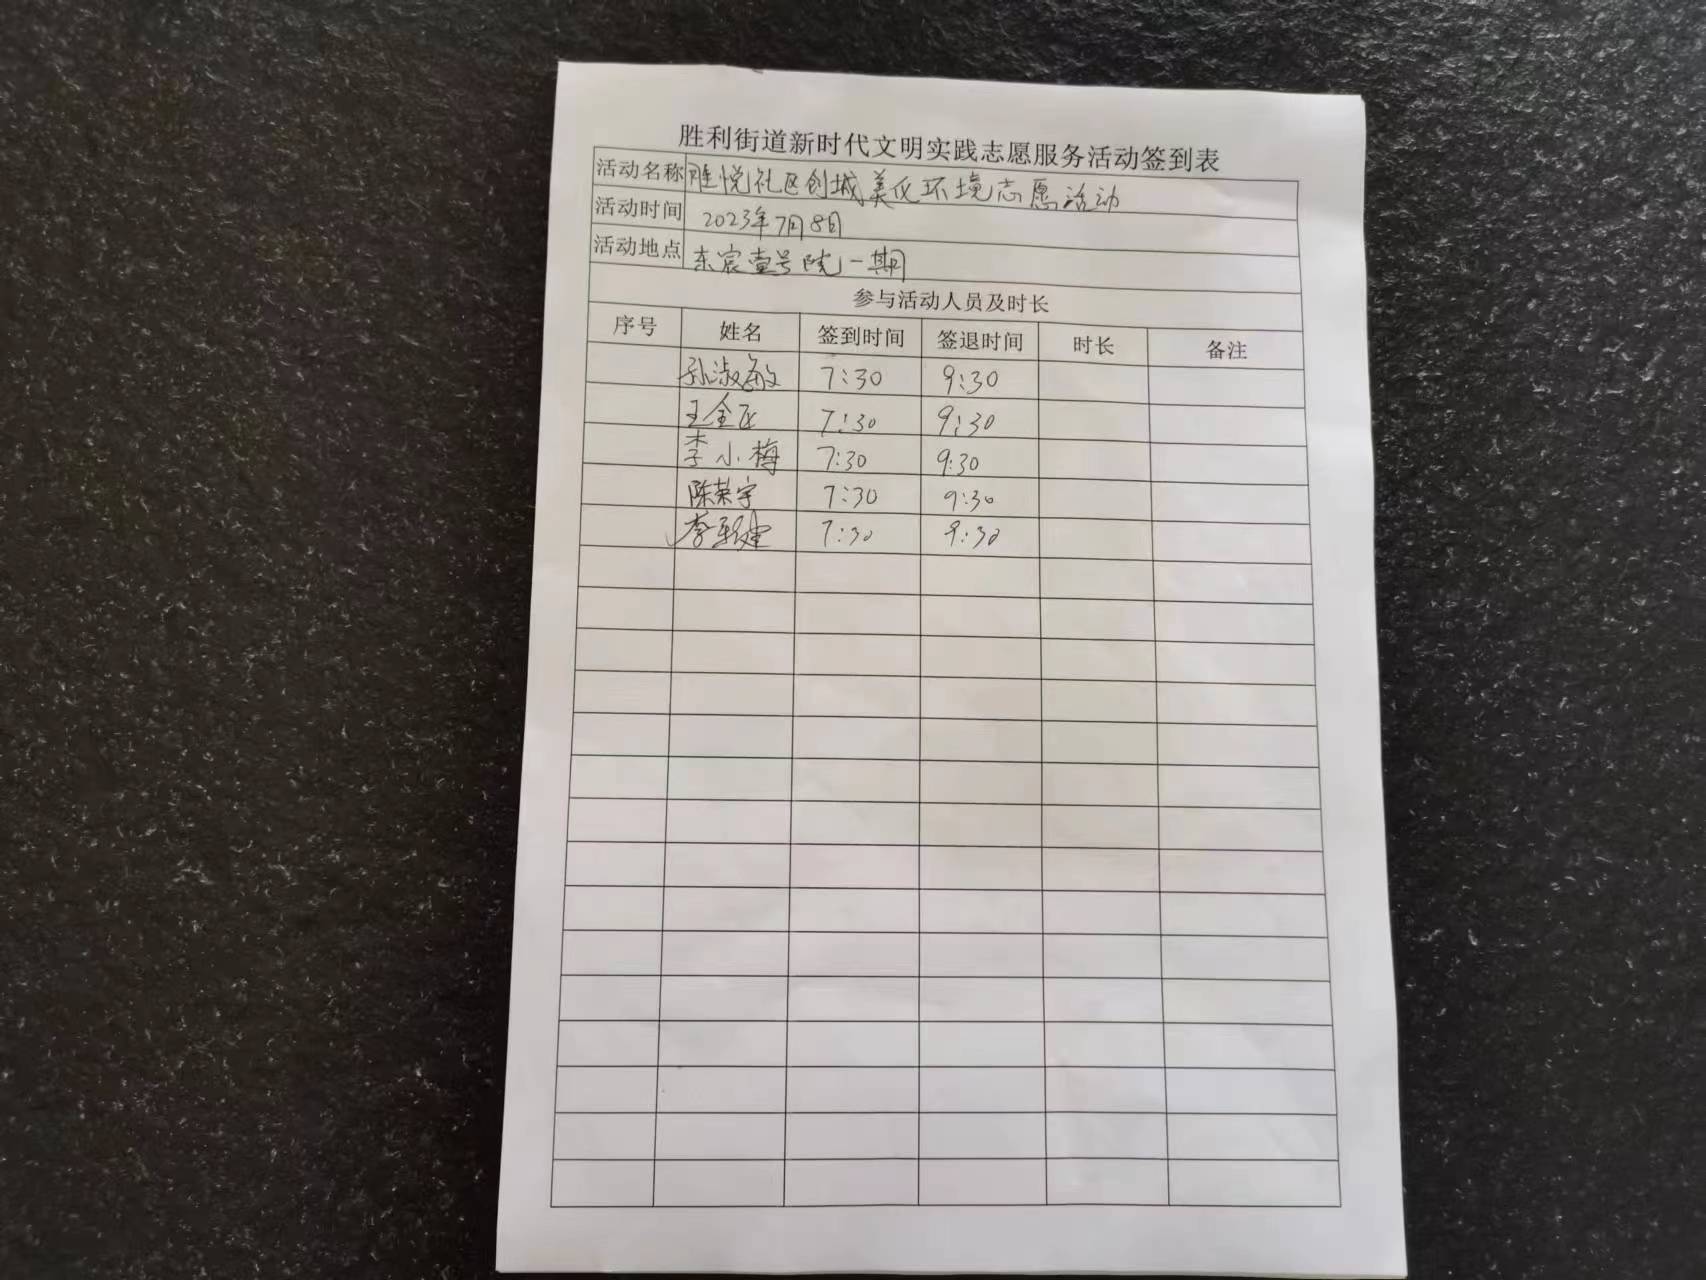 胜利街道新时代文明实践志愿服务活动签到表
活动名称 胜悦社区创城美化环境志愿活动
活动时间 2023年7月8日
活动地点 东宸壹号院一期
参与活动人员及时长
序号 姓名 签到时间 签退时间 时长 备注
孙淑敏 7:30 9:30
王全 7:30 9:30
李小梅 7:30 9:30
陈荣宇 7:30 9:30
李 建 7:30 9:30